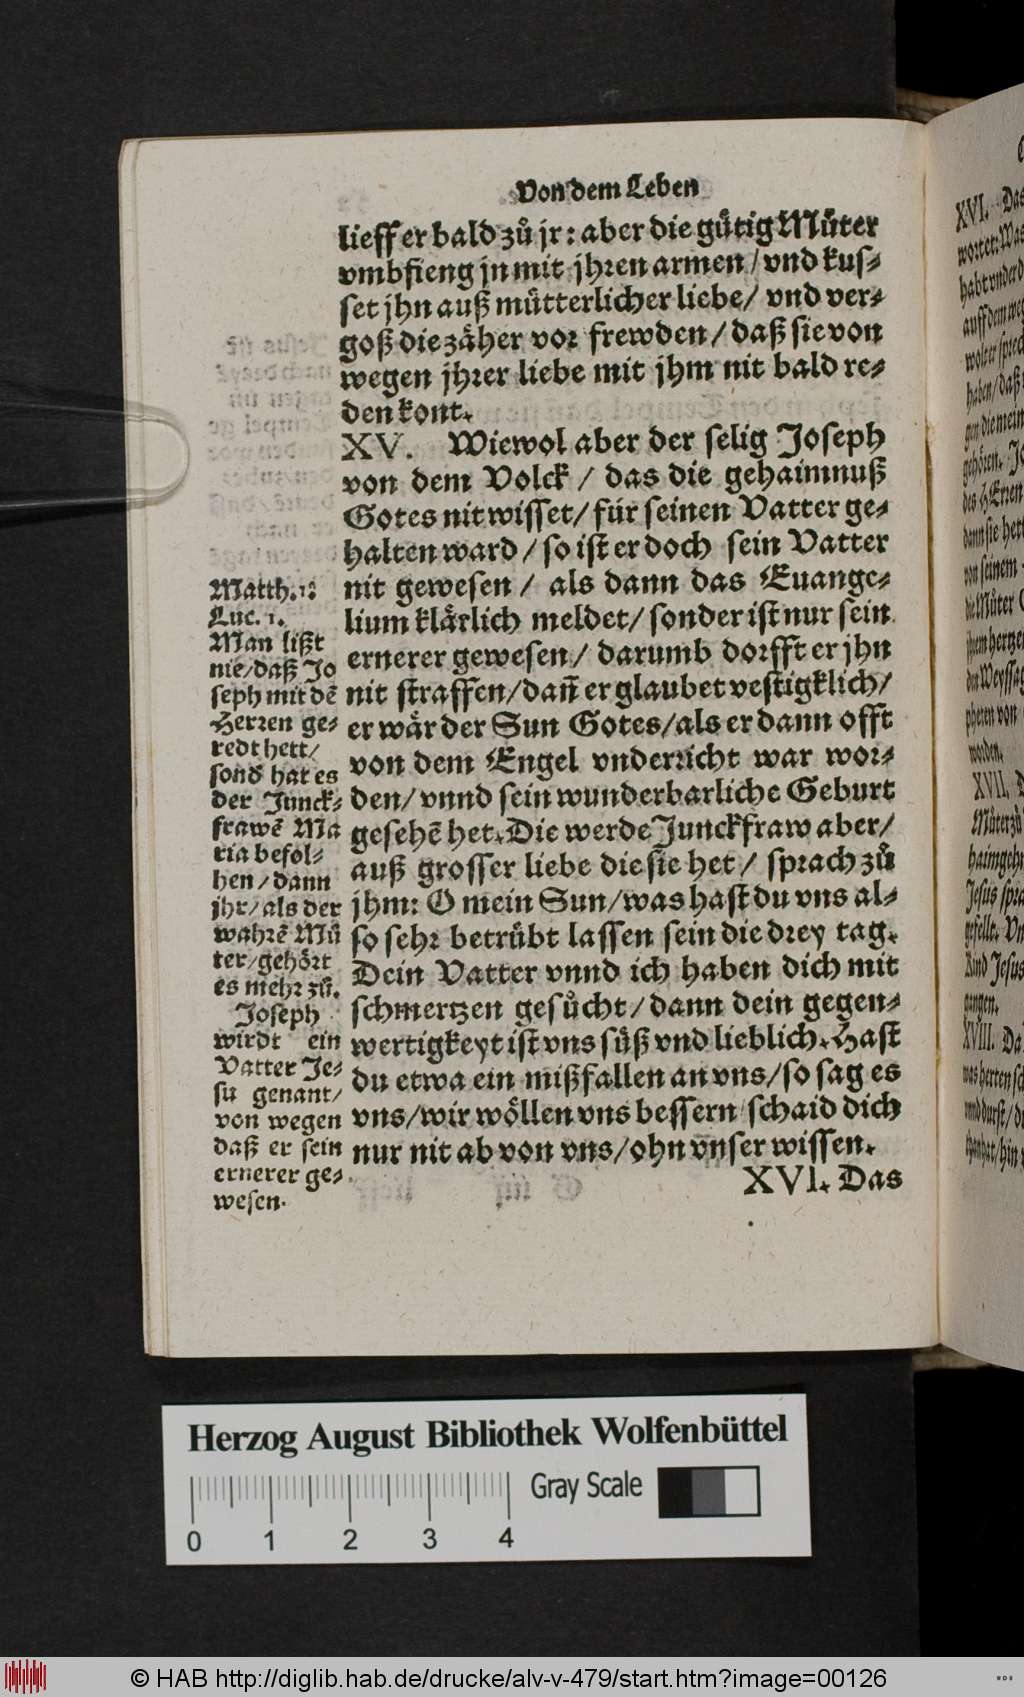 Von dem Leben
lieff er bald zuͦ jr: aber die guͤtig Muͤter
vmbfieng jn mit jhren armen / vnd kus⸗
set jhn auß muͤtterlicher liebe/ vnd ver⸗
goß die zaͤher vor frewden / daß sie von
wegen jhrer liebe mit jhm nit bald re⸗
den kont.
XV. Wiewol aber der selig Joseph
von dem Volck / das die gehaimnuß
Gotes nit wisset/ für seinen Vatter ge⸗
halten ward / so ist er doch sein Vatter
nit gewesen / als dann das Euange⸗
lium klaͤrlich meldet/ sonder ist nur sein
ernerer gewesen / darumb dorfft er jhn
nit straffen/ dañ er glaubet vestigklich/
er waͤr der Sun Gotes/ als er dann offt
von dem Engel vnderricht war wor⸗
den/ vnnd sein wunderbarliche Geburt
gesehẽ het. Die werde Junckfraw aber/
auß grosser liebe die sie het / sprach zuͦ
jhm: O mein Sun/ was hast du vns al⸗
so sehr betruͤbt lassen sein die drey tag.
Dein Vatter vnnd ich haben dich mit
schmertzen gesuͦcht / dann dein gegen⸗
wertigkeyt ist vns suͤß vnd lieblich. Hast
du etwa ein mißfallen an vns/ so sag es
vns/ wir woͤllen vns bessern / schaid dich
nur nit ab von vns/ ohn vnser wissen.
XVI. Das
Matth. 1:
Luc. 1.
Man lißt
nie/ daß Jo
seph mit dẽ
Herren ge⸗
redt hett/
sond̄ hat es
der Junck⸗
frawẽ Ma
ria befol⸗
hen / dann
jhr/ als der
wahrẽ Muͦ
ter/ gehoͤrt
es mehr zuͦ.
Joseph
wirdt ein
Vatter Je⸗
su genant/
von wegen
daß er sein
ernerer ge⸗
wesen.
XVI. Das
XVII.
XVIII. Da
Herzog August Bibliothek Wolfenbüttel
Gray Scale
0 1 2 3 4
© HAB http://diglib.hab.de/drucke/alv-v-479/start.htm?image=00126